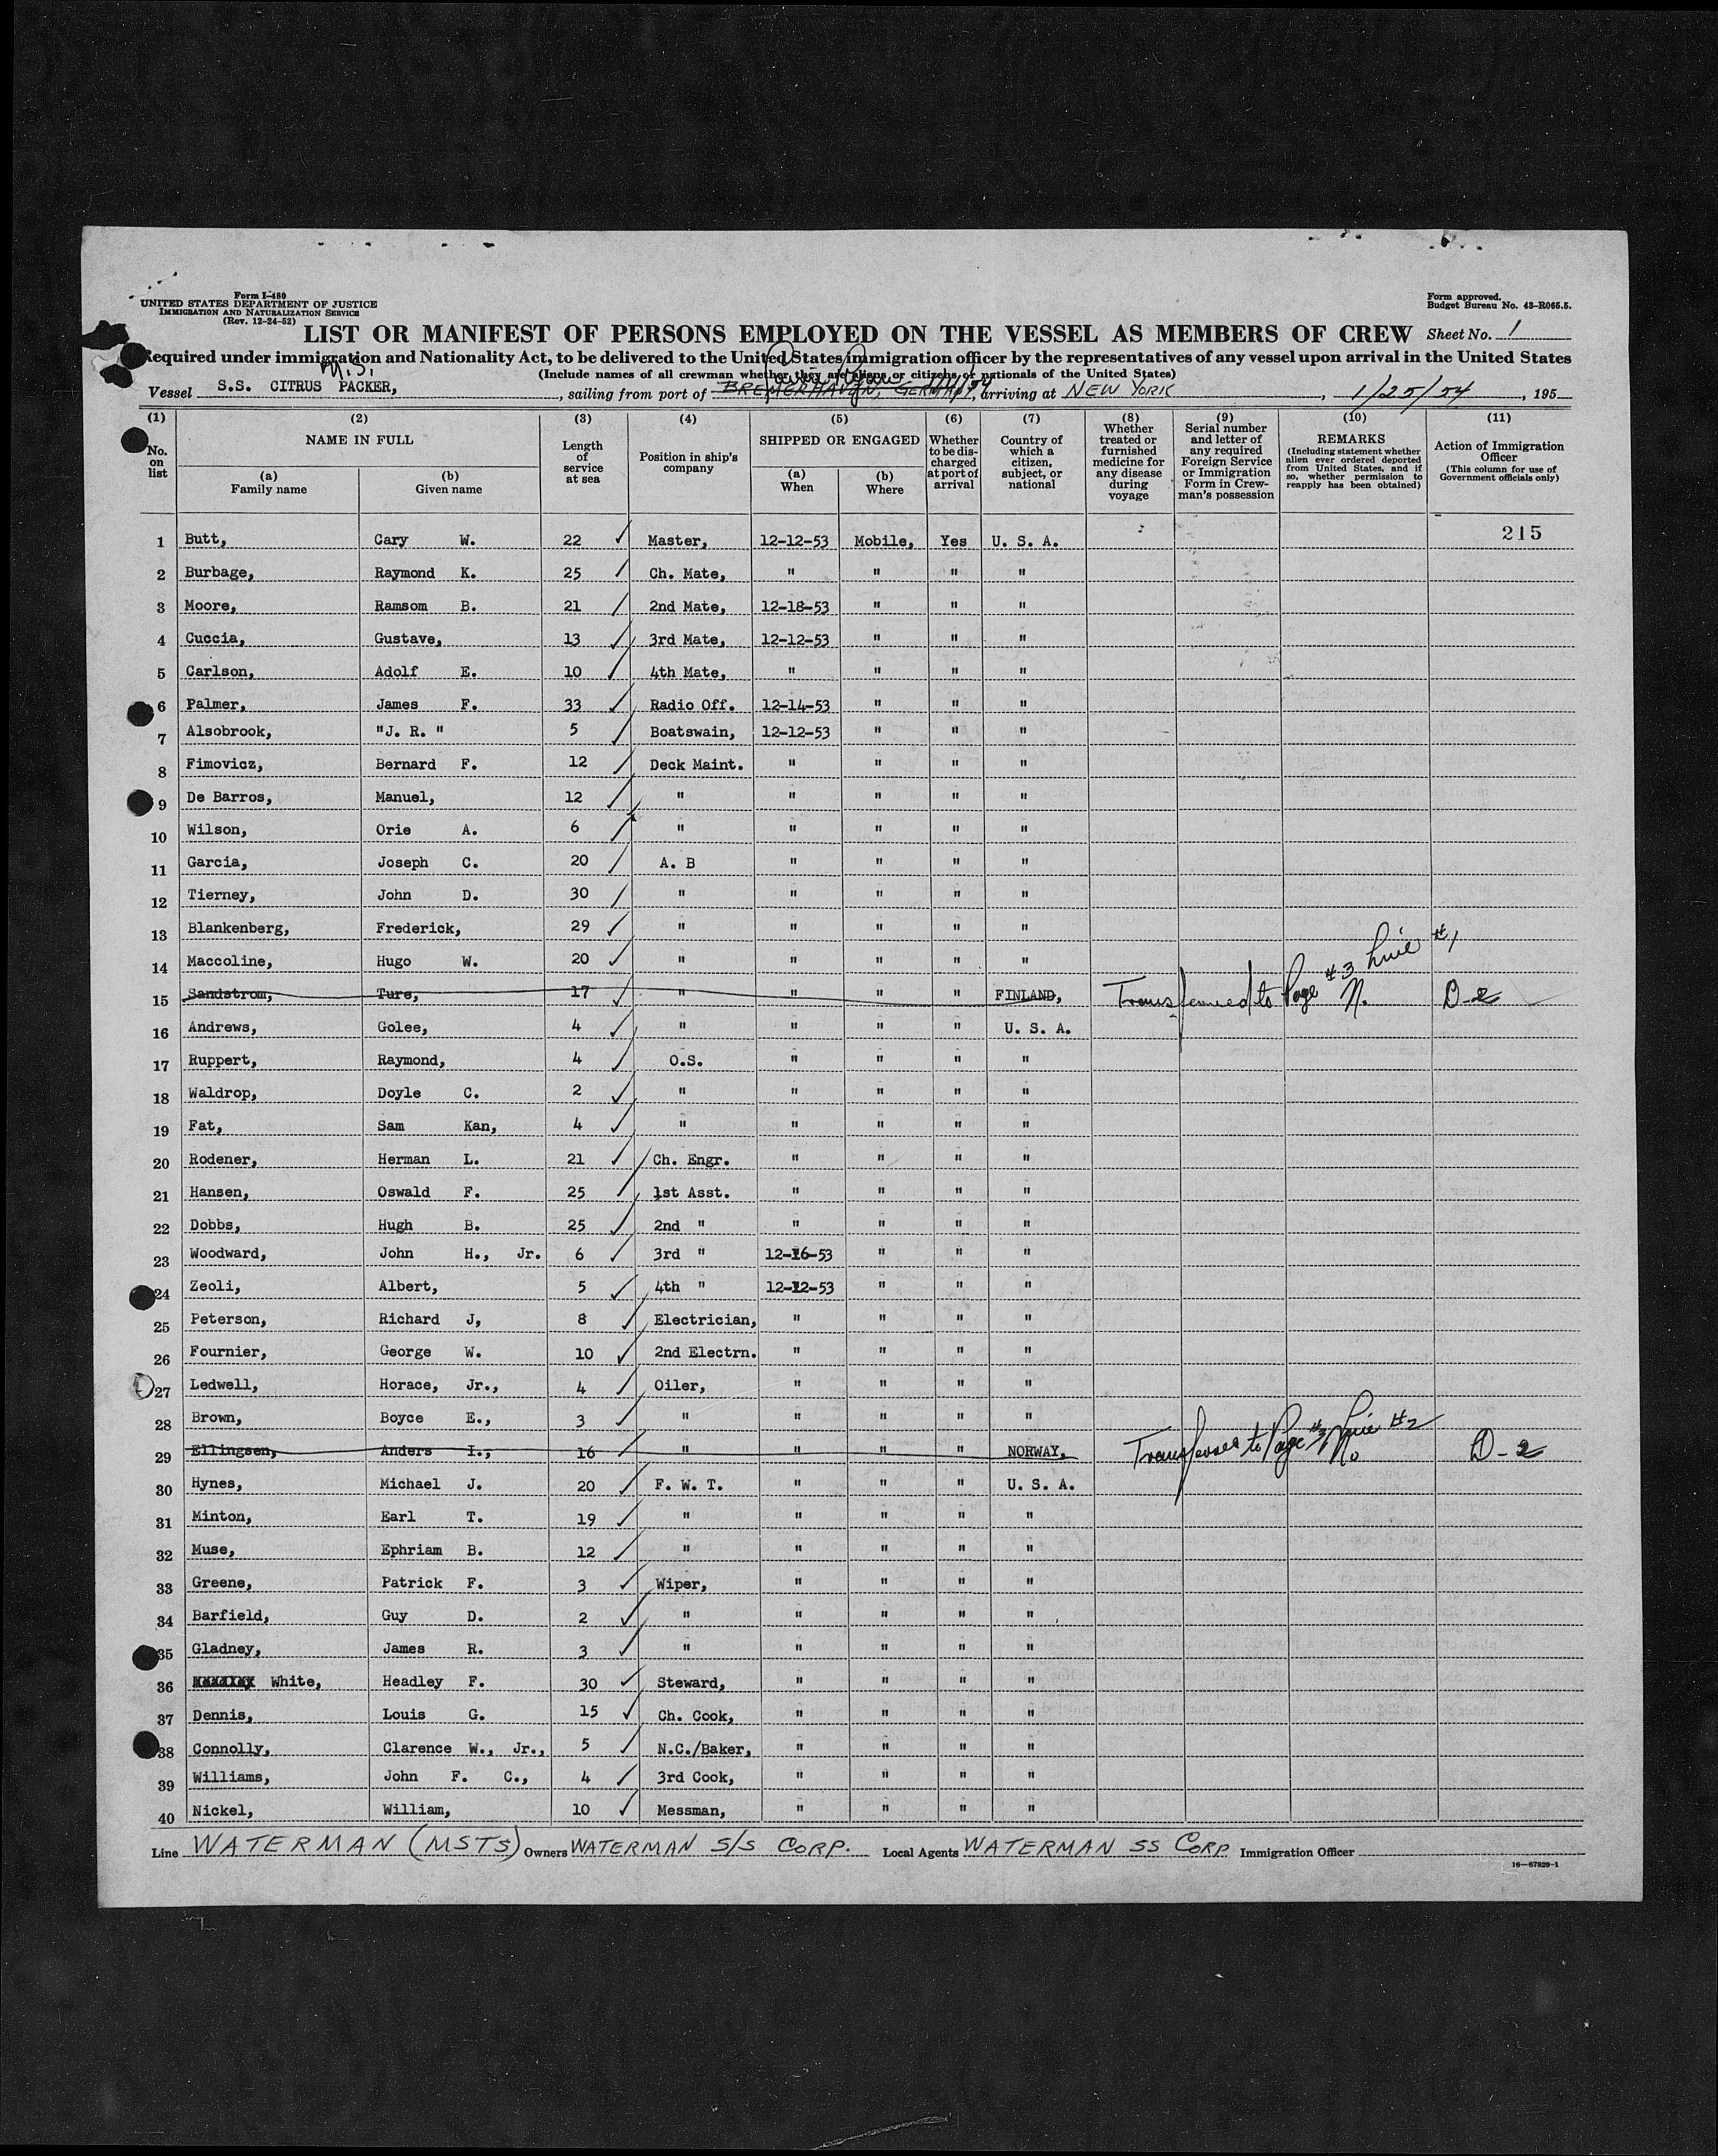 Form I-480
UNITED STATES DEPARTMENT OF JUSTICE
IMMIGRATION AND NATURALIZATION SERVICE
(Rev. 12-24-52)
Form approved.
Budget Bureau No. 43-R065.5.
LIST OR MANIFEST OF PERSONS EMPLOYED ON THE VESSEL AS MEMBERS OF CREW Sheet No. 1
Required under immigration and Nationality Act, to be delivered to the United States immigration officer by the representatives of any vessel upon arrival in the United States
(Include names of all crewman whether they are aliens or citizens or nationals of the United States)
Vessel S.S. CITRUS PACKER, , sailing from port of BREMERHAVEN, GERMANY, arriving at NEW YORK , 1/25/54 , 195
(1) (2) (3) (4) (5) (6) (7) (8) (9) (10) (11)
No. on list
NAME IN FULL
(a) Family name
(b) Given name
Length of service at sea
Position in ship's company
SHIPPED OR ENGAGED
(a) When
(b) Where
Whether to be discharged at port of arrival
Country of which a citizen, subject, or national
Whether treated or furnished medicine for any disease during voyage
Serial number and letter of any required Foreign Service or Immigration Form in Crewman's possession
REMARKS
(Including statement whether alien ever ordered deported from United States, and if so, whether permission to reapply has been obtained)
Action of Immigration Officer
(This column for use of Government officials only)
215
1 Butt, Cary W. 22 ✓ Master, 12-12-53 Mobile, Yes U. S. A.
2 Burbage, Raymond K. 25 ✓ Ch. Mate, " " " "
3 Moore, Ramsom B. 21 ✓ 2nd Mate, 12-18-53 " " "
4 Cuccia, Gustave, 13 ✓ 3rd Mate, 12-12-53 " " "
5 Carlson, Adolf E. 10 ✓ 4th Mate, " " " "
6 Palmer, James F. 33 ✓ Radio Off. 12-14-53 " " "
7 Alsobrook, "J. R. " 5 ✓ Boatswain, 12-12-53 " " "
8 Fimovicz, Bernard F. 12 ✓ Deck Maint. " " " "
9 De Barros, Manuel, 12 ✓ " " " " "
10 Wilson, Orie A. 6 ✓ " " " " "
11 Garcia, Joseph C. 20 ✓ A. B " " " "
12 Tierney, John D. 30 ✓ " " " " "
13 Blankenberg, Frederick, 29 ✓ " " " " "
14 Maccoline, Hugo W. 20 ✓ " " " " "
15 Sandstrom, Ture, 17 ✓ " " " " FINLAND, Transferred to Page #3 Line #1 N. D-2
16 Andrews, Golee, 4 ✓ " " " " U. S. A.
17 Ruppert, Raymond, 4 ✓ O.S. " " " "
18 Waldrop, Doyle C. 2 ✓ " " " " "
19 Fat, Sam Kan, 4 ✓ " " " " "
20 Rodener, Herman L. 21 ✓ Ch. Engr. " " " "
21 Hansen, Oswald F. 25 ✓ 1st Asst. " " " "
22 Dobbs, Hugh B. 25 ✓ 2nd " " " " "
23 Woodward, John H., Jr. 6 ✓ 3rd " 12-16-53 " " "
24 Zeoli, Albert, 5 ✓ 4th " 12-12-53 " " "
25 Peterson, Richard J, 8 ✓ Electrician, " " " "
26 Fournier, George W. 10 ✓ 2nd Electrn. " " " "
27 Ledwell, Horace, Jr., 4 ✓ Oiler, " " " "
28 Brown, Boyce E., 3 ✓ " " " " "
29 Ellingsen, Anders I., 16 ✓ " " " " NORWAY, Transferred to Page #3 Line #2 No D-2
30 Hynes, Michael J. 20 ✓ F. W. T. " " " U. S. A.
31 Minton, Earl T. 19 ✓ " " " " "
32 Muse, Ephriam B. 12 ✓ " " " " "
33 Greene, Patrick F. 3 ✓ Wiper, " " " "
34 Barfield, Guy D. 2 ✓ " " " " "
35 Gladney, James R. 3 ✓ " " " " "
36 White, Headley F. 30 ✓ Steward, " " " "
37 Dennis, Louis G. 15 ✓ Ch. Cook, " " " "
38 Connolly, Clarence W., Jr., 5 ✓ N.C./Baker, " " " "
39 Williams, John F. C., 4 ✓ 3rd Cook, " " " "
40 Nickel, William, 10 ✓ Messman, " " " "
Line WATERMAN (MSTS) Owners WATERMAN S/S CORP. Local Agents WATERMAN SS CORP Immigration Officer
16-67829-1